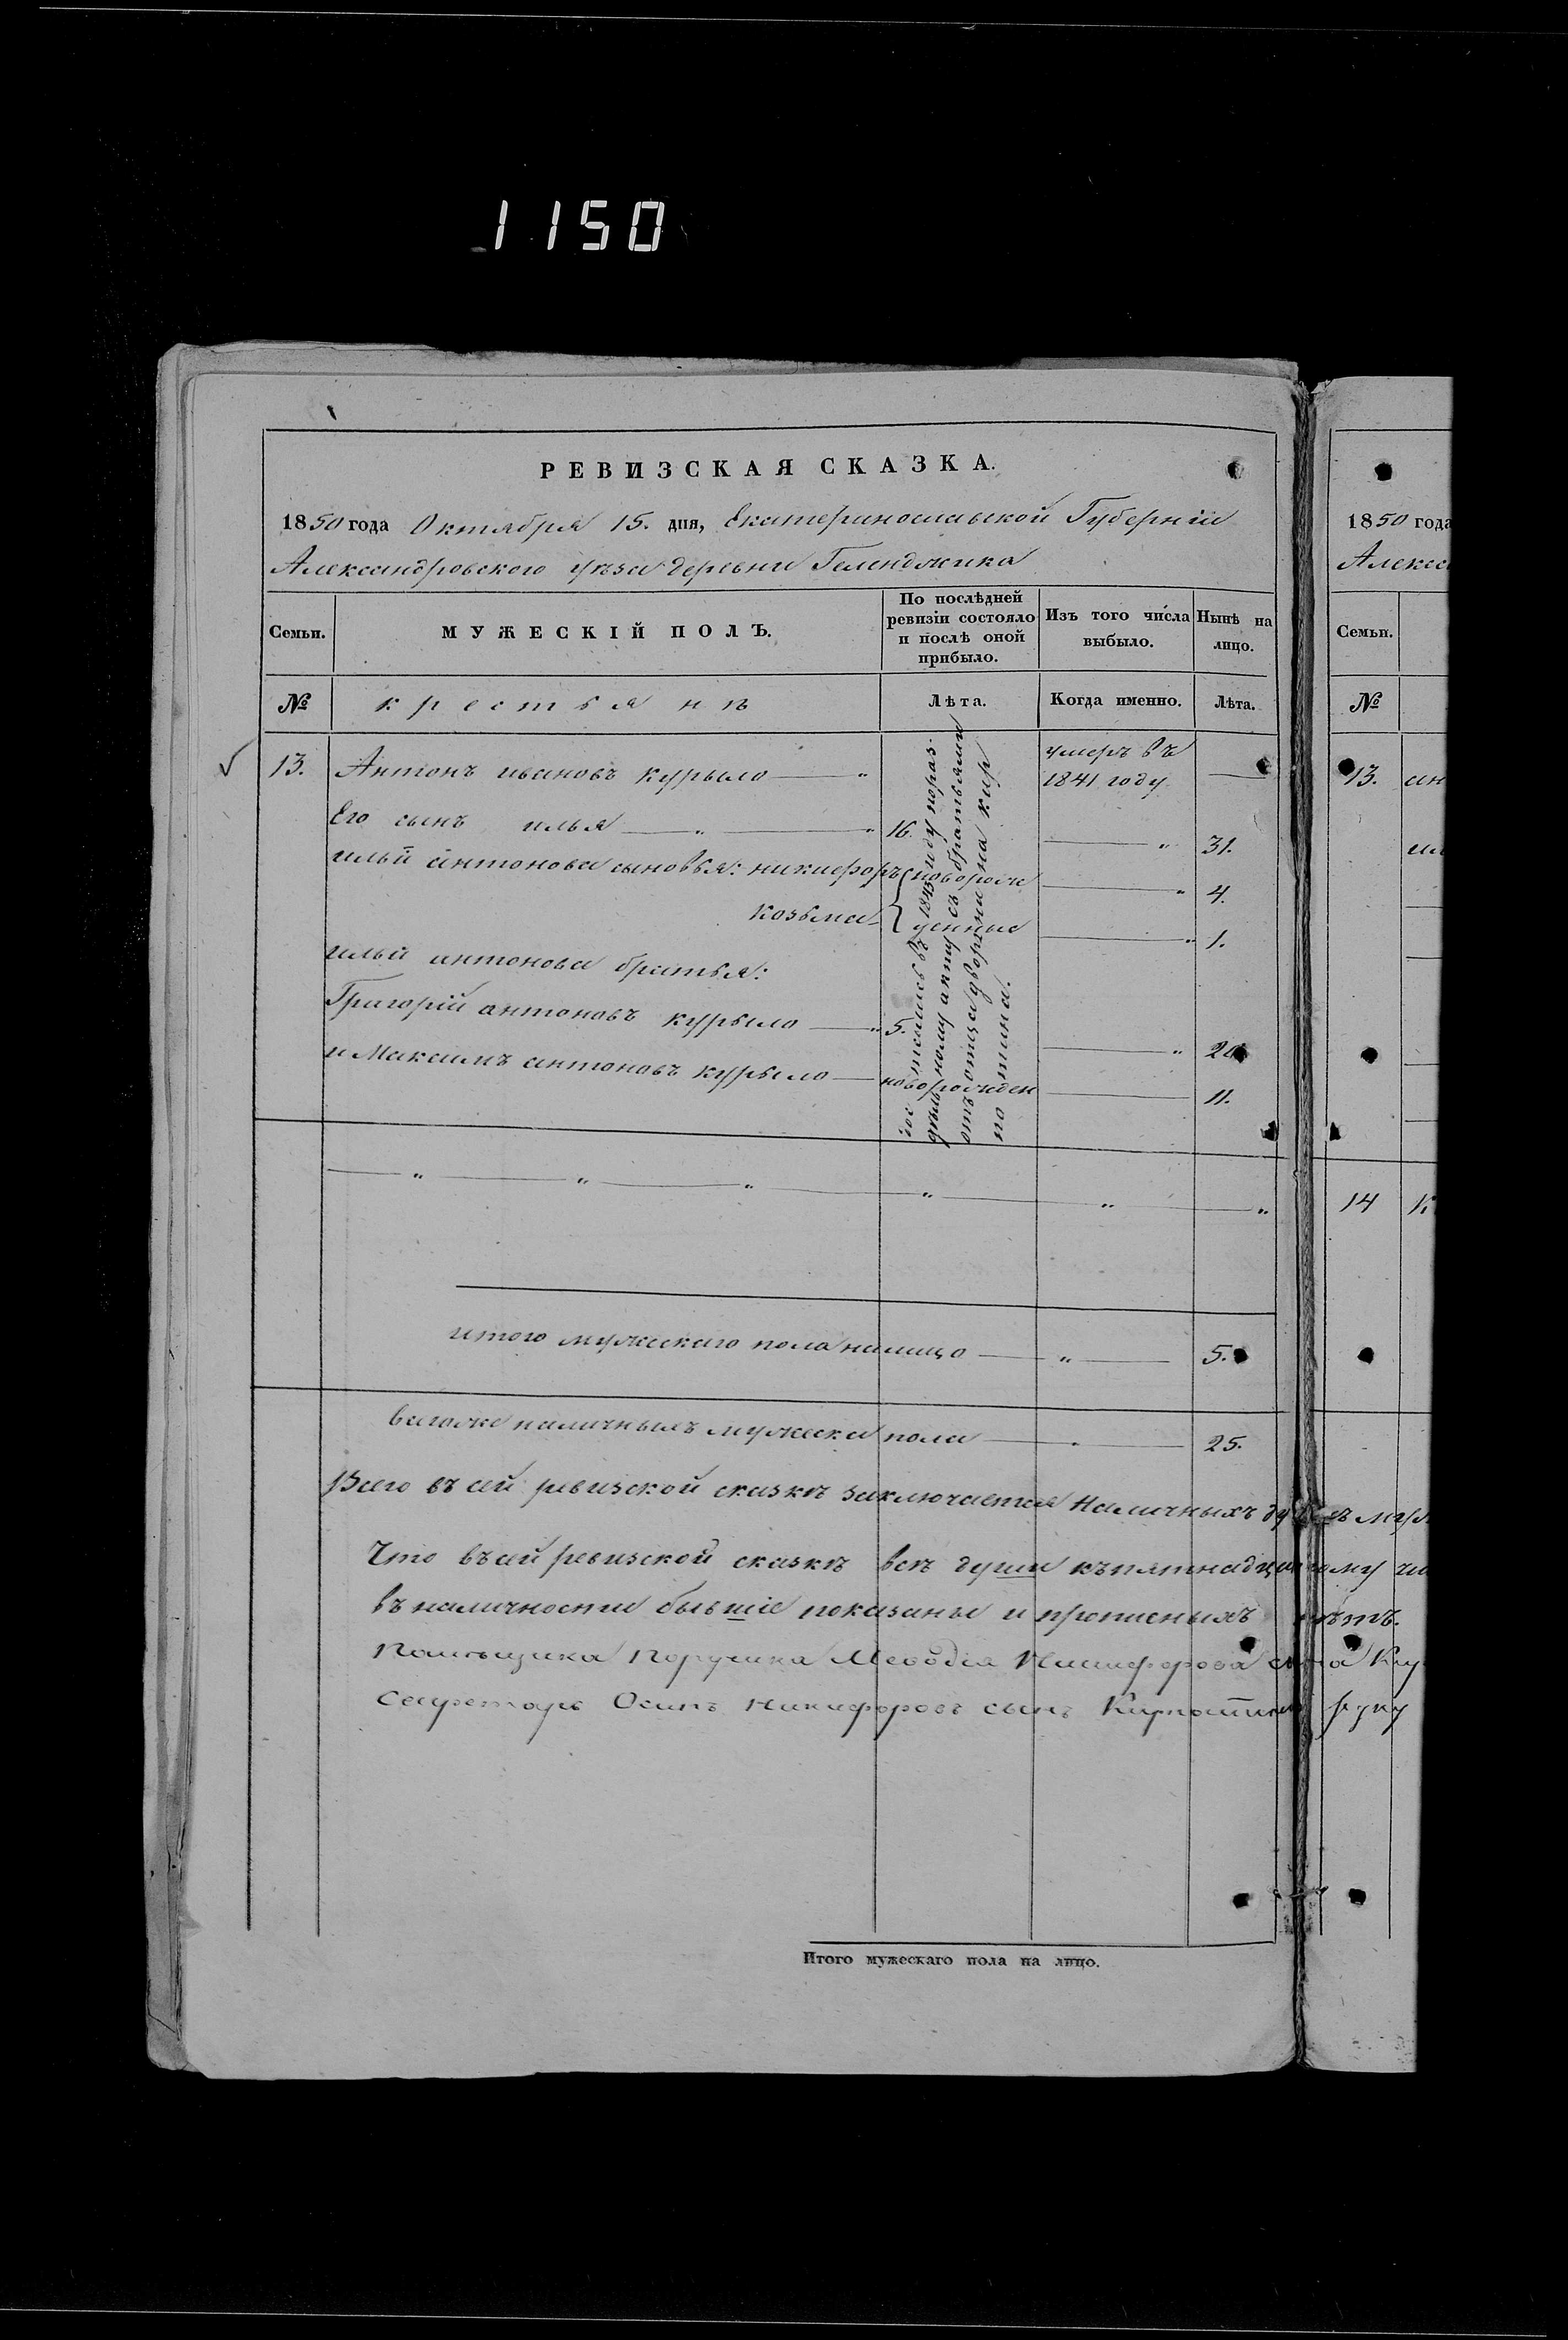 1150
РЕВИЗСКАЯ СКАЗКА.
1850 года Октября 15. дня, Екатеринославской Губерніи
Александровского уѣзда деревни Геленджика
Семьи.
МУЖЕСКІЙ ПОЛЪ.
По послѣдней ревизіи состояло и послѣ оной прибыло.
Изъ того числа выбыло.
Нынѣ на лицо.
№
крестьянъ
Лѣта.
Когда именно.
Лѣта.
13. Антонъ ивановъ курыло — „ умеръ въ 1841 году —
Его сынъ илья — „ — „ 16. — „ 31.
ильи антонова сыновья: никифоръ новорож — „ 4.
козьма денные — „ 1.
ильи антонова братья:
Григорій антоновъ курыло — „ 5. — „ 20
и Максимъ антоновъ курыло — новорожден — 11.
достались въ 1843 году по раз
дѣльному акту съ братьями
отъ отца дворянина кир
потина.
— „ — „ — „ — „ — „ — „
итого мужескаго пола налицо — „ — 5.
вагоже наличныхъ мужеска пола — 25.
Всего въ сей ревизской сказкѣ заключается Наличныхъ
Что въ сей ревизской сказкѣ всѣ души къ пятнадцатому
въ наличности бывшіе показаны и прописныхъ нѣтъ.
Помѣщика Поручика Меѳодія Никифорова сына
Секретарь Осипъ Никифоровъ сынъ Кирпотинъ руку
Итого мужескаго пола на лицо.
1850 года
Семьи.
№
13.
14